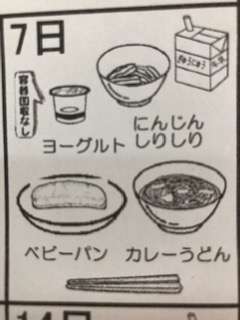 7日
ぎゅうにゅう
容器回収なし
ヨーグルト
にんじん
しりしり
ベビーパン
カレーうどん
14日